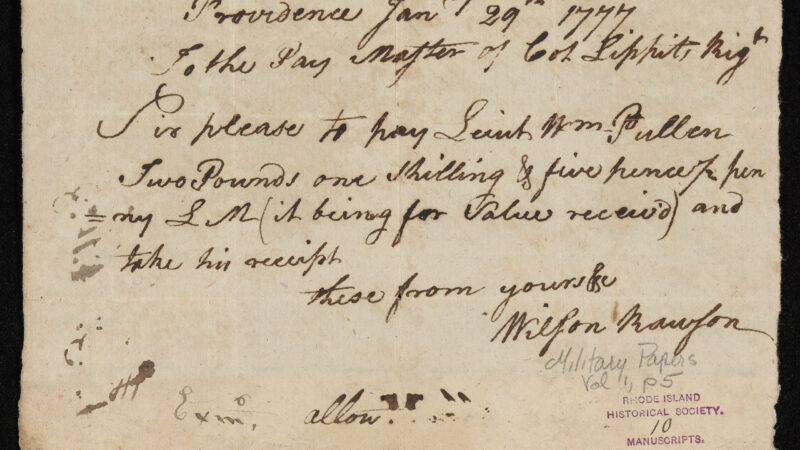 Providence Janry 29th 1777
To the Pay Master of Col Lippits Rigt
Sir please to pay Leiut Wm Pullen
Two Pounds one shilling & five pence ½ pen
=ny L M (it being for Value receiv'd) and
take his receipt
these from yours &c
Wilson Rawson
Military Papers
Vol 1, p5
Exmd. allow.
RHODE ISLAND
HISTORICAL SOCIETY.
10
MANUSCRIPTS.